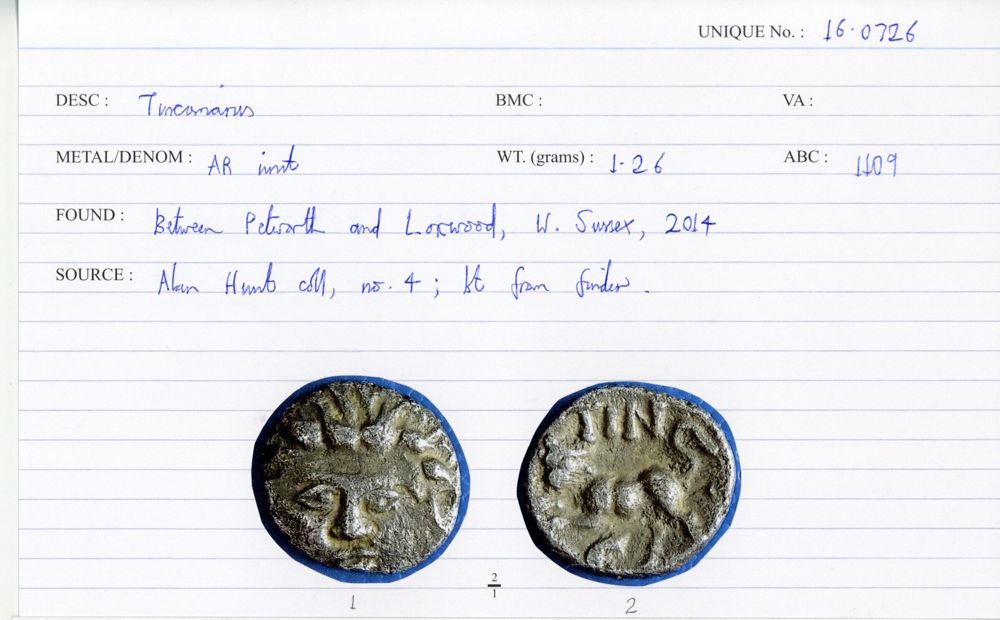 UNIQUE No. : 16.0726
DESC : Tincomarus BMC : VA :
METAL/DENOM : AR unit WT. (grams) : 1.26 ABC : 1109
FOUND : Between Petworth and Loxwood, W. Sussex, 2014
SOURCE : Alan Hunt coll, no. 4 ; bt from finder.
TIN
2
1
1 2